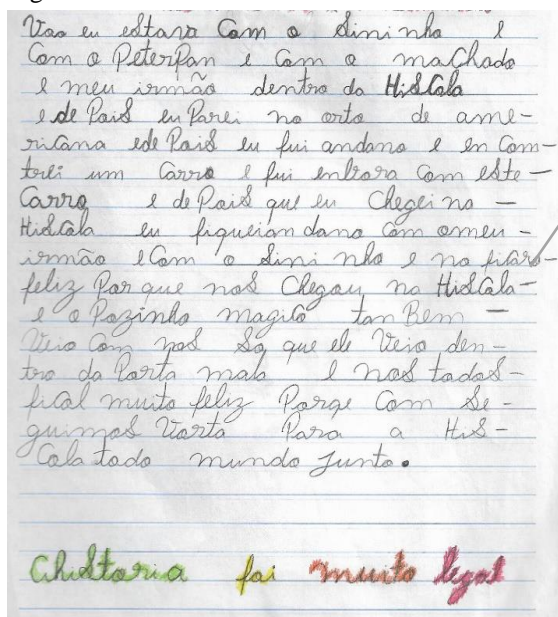 Vao eu estava Com o Sininho e
Com o PeterPan e Com o maChado
e meu irmão dentro da HisCola
e de Pais eu Parei no orto de ame-
ricana ede Pais eu fui andano e en Com-
trei um Carro e fui enbora Com este-
Carro e de Pais que eu Chegei na -
HisCola eu fiqueian dano Com omeu -
irmão eCom o Sini nho e no ficaro-
feliz Por que nos Chegou na HisCola-
e o Pozinho magico tan Bem -
Veio Com nos So que ele Veio den-
tro da Porta mala e nos todos-
fical muito feliz Porqe Com Se-
guimos Vorta Para a HiS-
Cola todo mundo Junto.
Ahistoria foi muito legal